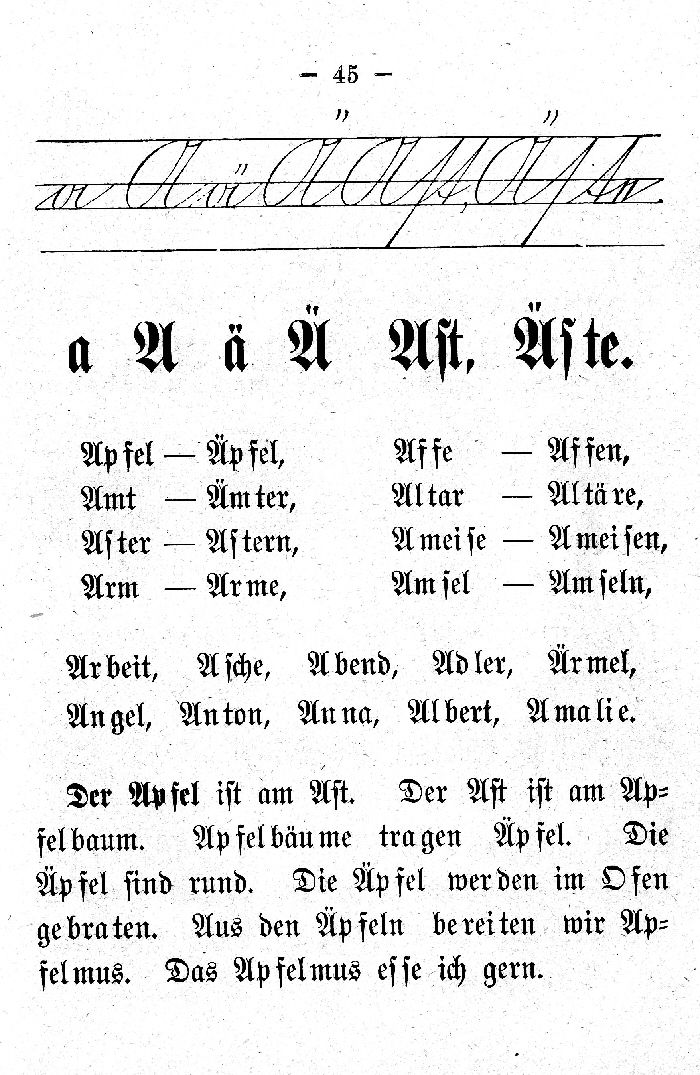 – 45 –
a A ä Ä Ast, Äste.
a A ä Ä Ast, Äste.
Apfel — Äpfel, Affe — Affen,
Amt — Ämter, Altar — Altäre,
Aster — Astern, Ameise — Ameisen,
Arm — Arme, Amsel — Amseln,
Arbeit, Asche, Abend, Adler, Ärmel,
Angel, Anton, Anna, Albert, Amalie.
Der Apfel ist am Ast. Der Ast ist am Ap-
felbaum. Apfelbäume tragen Äpfel. Die
Äpfel sind rund. Die Äpfel werden im Ofen
gebraten. Aus den Äpfeln bereiten wir Ap-
felmus. Das Apfelmus esse ich gern.